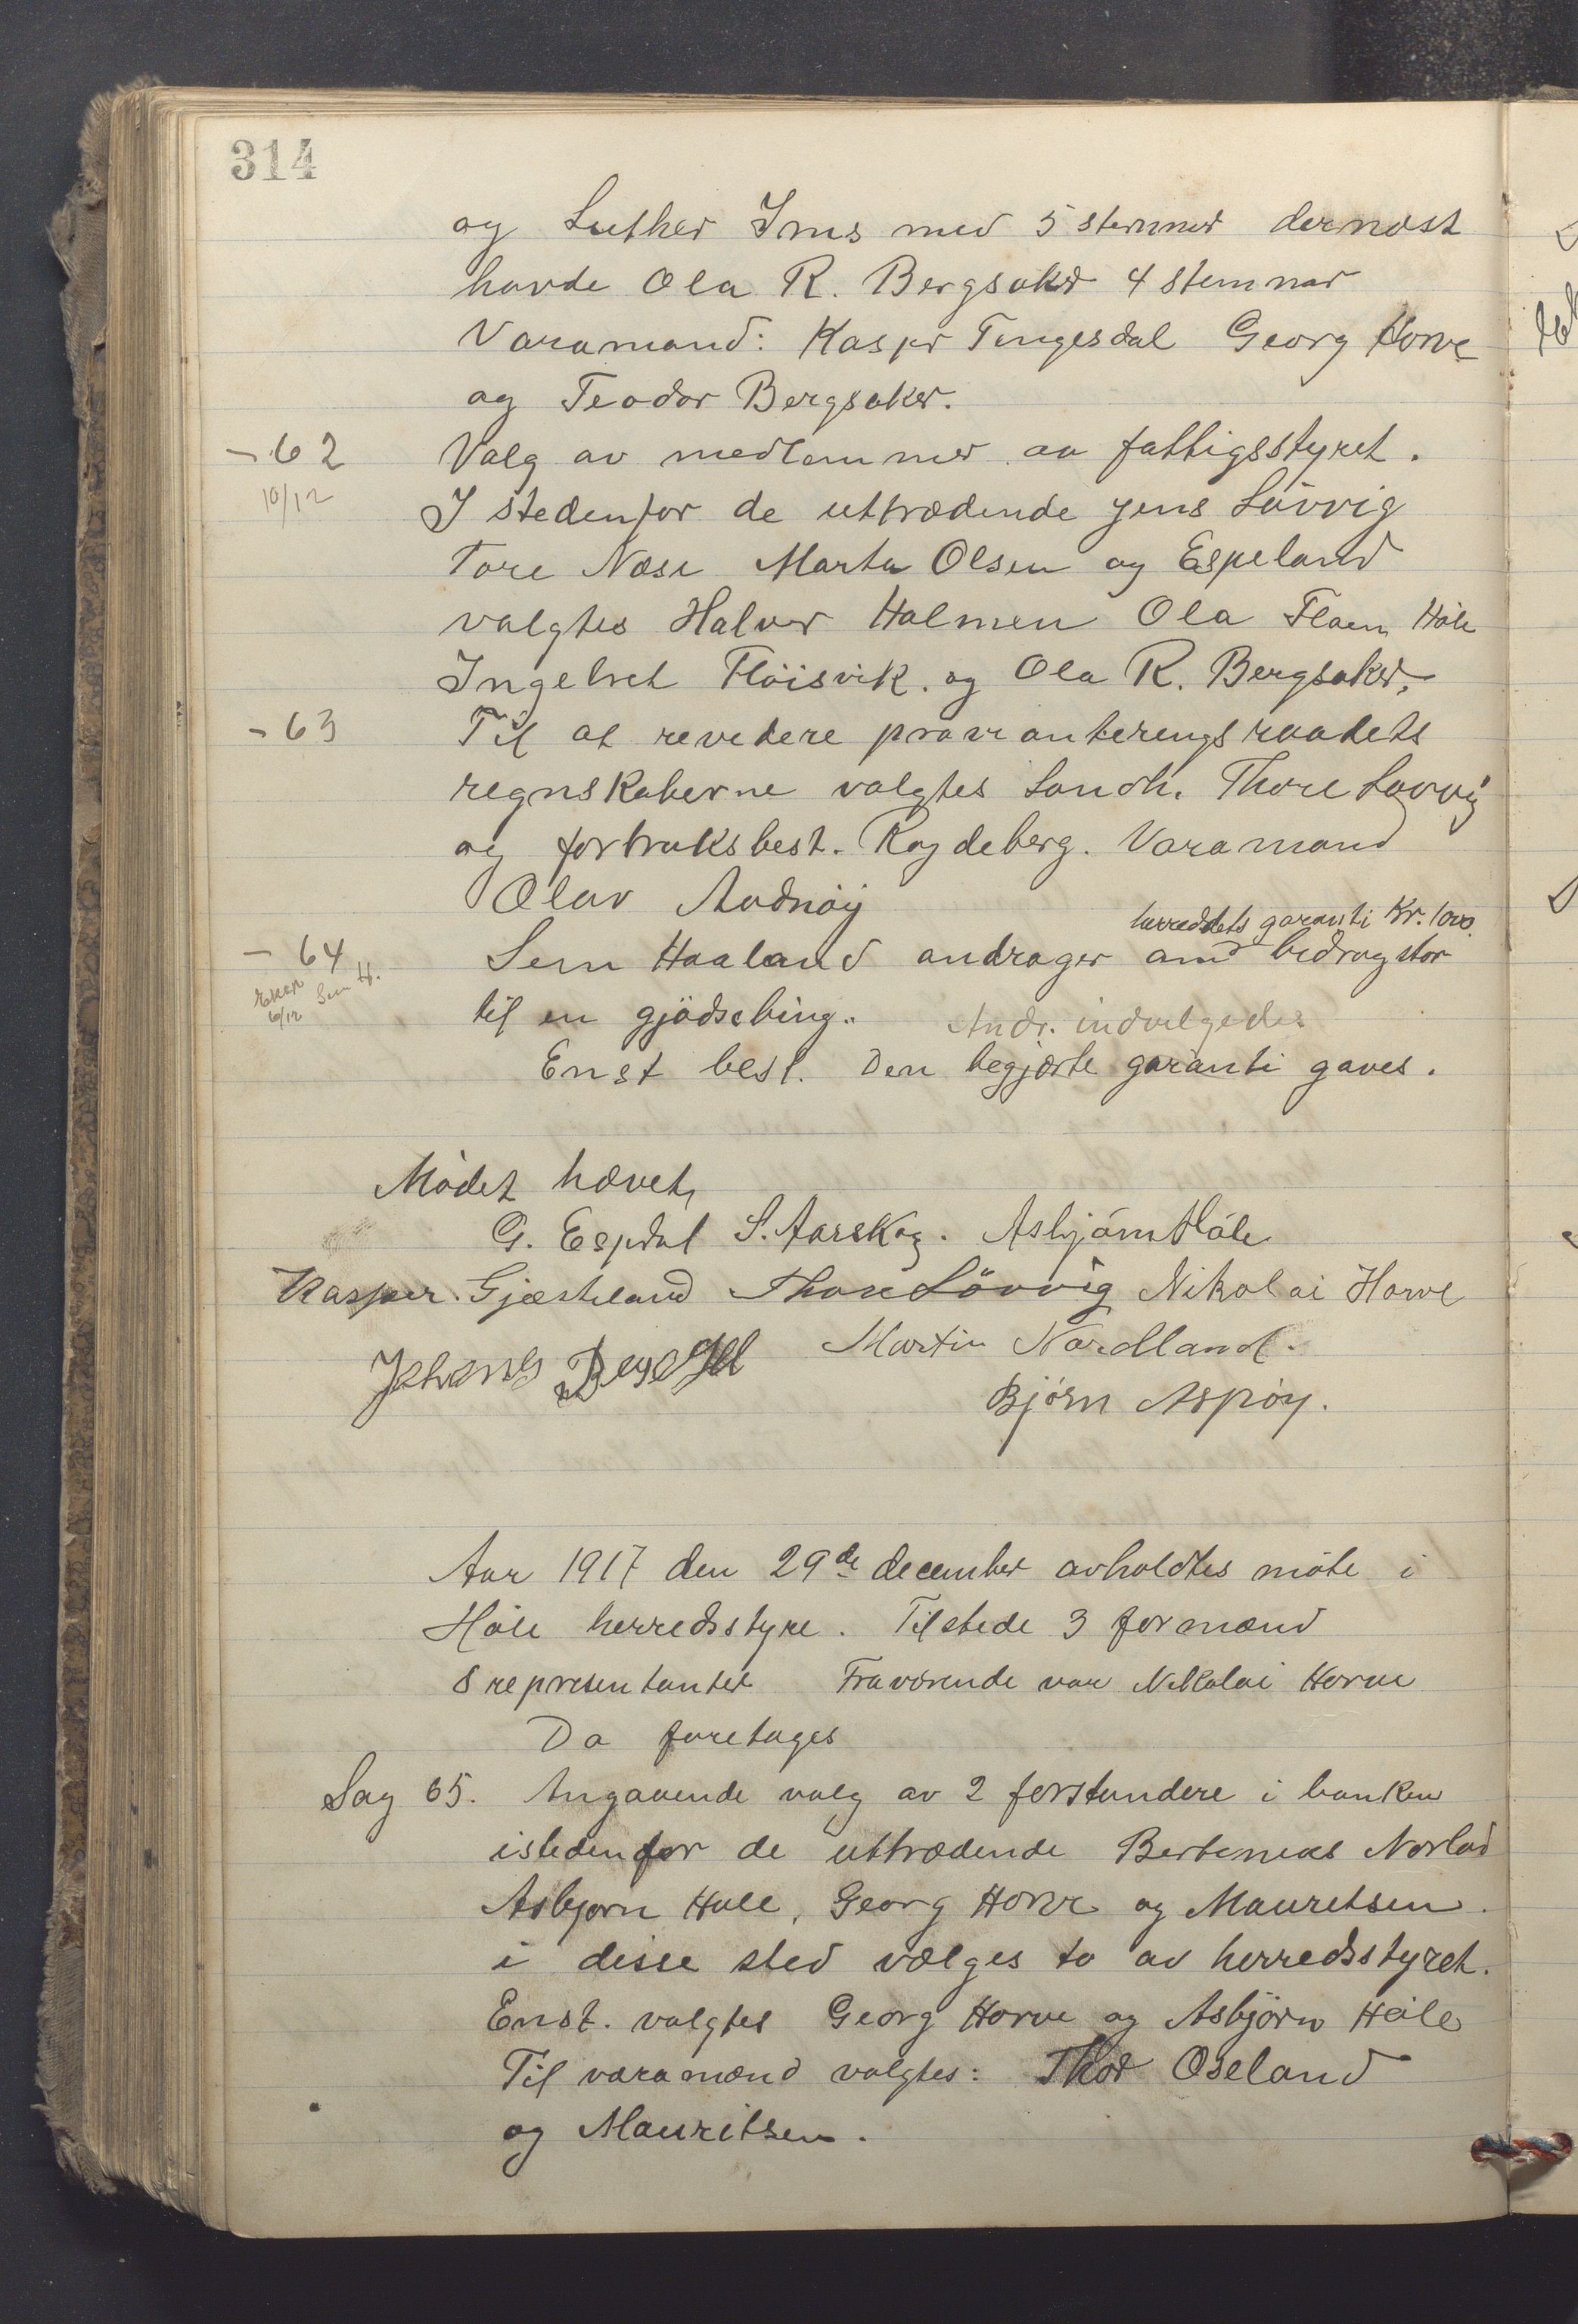 314
og Luther Ims med 5 stemmer dernæst
havde Ola R. Bergsaker 4 stemmer
Varamænd: Kasper Tengesdal Georg Horve
og Teodor Bergsaker.
- 62 Valg av medlemmer av fattigsstyret.
10/12
I stedenfor de uttrædende Jens Lövvig
Tore Næse Marta Olsen og Espeland
valgtes Halvor Holmen Ola Høle
Ingebret Flöisvik. og Ola R. Bergsaker.
- 63 Til at revidere provianteringsraadets
regnskaberne valgtes Landh. Thore Lövvig
og fortruksbest. Rogdeberg. Varamand
Olav Andnöy
herredets garanti Kr. 1000
- 64 Sem Haaland andrager om bidrag stor
Sem H.
6/12
til en gjödsebing. Andr. indvelgedes
Enst best. Den begjærte garanti gaves.
Mödet hævet,
G. Espdal S. Aarskog. Asbjörn Höle
Kasper Gjæsteland Thore Lövvig Nikolai Horve
Martin Nordland.
Bjørn Aspøy.
Aar 1917 den 29de december avholdtes möte i
Höle herredsstyre. Tilstede 3 formænd
8 representanter Fraværende var Nikolai Horve
Da foretages
Sag 65. Angaaende valg av 2 forstandere i banken
istedenfor de uttrædende Bertineus Norland
Asbjørn Høle, Georg Horve og Mauretsen.
i disse sted vælges to av herredsstyret.
Enst. valgtes Georg Horve og Asbjörn Höle
Til varamænd valgtes: Thor Oseland
og Mauritsen.